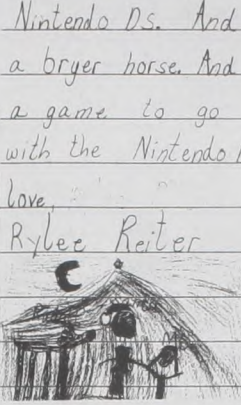 Nintendo Ds. And
a bryer horse. And
a game to go
with the Nintendo
love,
Rylee Reiter